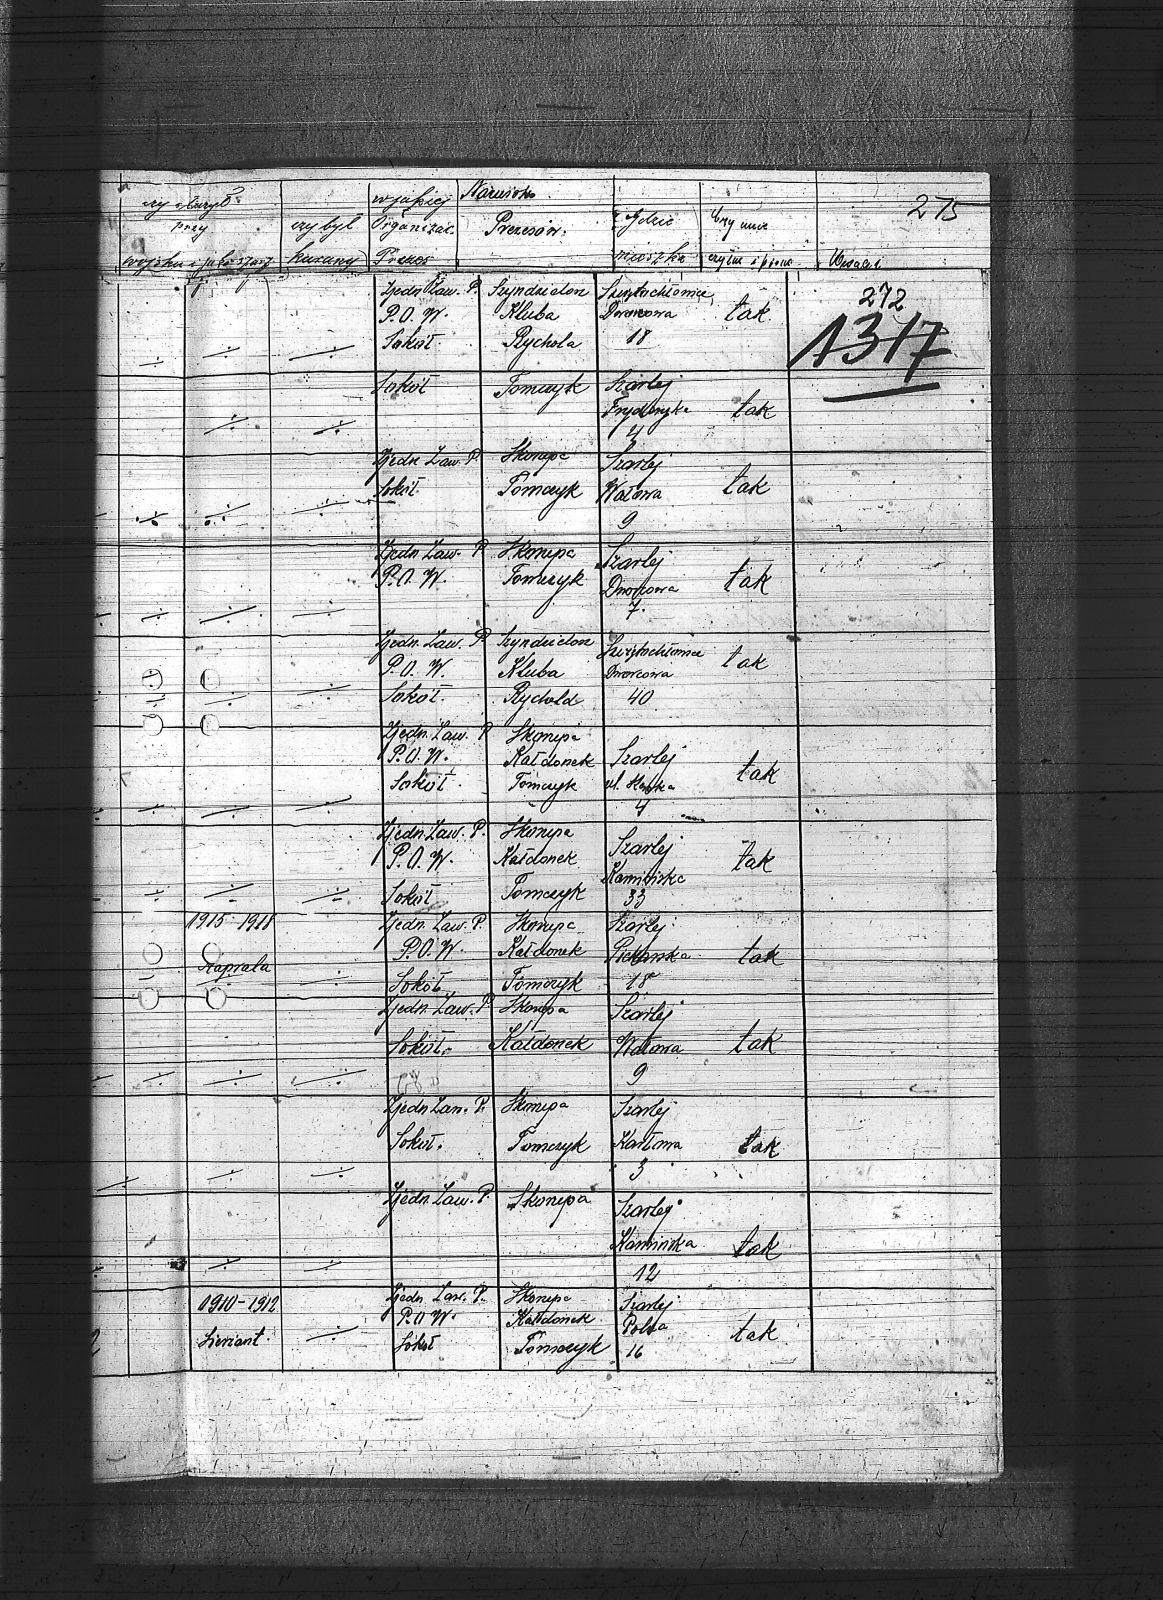 czy służył przy wojsku i jako szarż
czy był karany
w jakiej Organizac. Polskiej
Nazwisko Prezesów.
Gdzie mieszka
Czy umie czytać i pisać
Uwagi
275
272
1317
Zjedn. Zaw. P. Szyndzielorz Świętochłowice
P.O.W. Kluba Dworcowa tak
Sokół Rychola 18
Sokół Tomczyk Szarlej
Fryderyka tak
4
Zjedn. Zaw. P. Skorupa Szarlej
Sokół Tomczyk Wałowa tak
9
Zjedn. Zaw. P. Skorupa Szarlej
P.O.W. Tomczyk Dworcowa tak
7.
Zjedn. Zaw. P. Szyndzielorz Świętochłowice tak
P.O.W. Kluba Dworcowa
Sokół Rychold 40
Zjedn. Zaw. P. Skorupa
P.O.W. Kałdonek Szarlej tak
Sokół Tomczyk ul.
4
Zjedn. Zaw. P. Skorupa Szarlej
P.O.W. Kałdonek Kamińska tak
Sokół Tomczyk 33
1915-1918 Zjedn. Zaw. P. Skorupa Szarlej
Kaprala P.O.W. Kałdonek Piekarska tak
Sokół Tomczyk 18
Zjedn. Zaw. P. Skorupa Szarlej
Sokół. Kałdonek Wałowa tak
9
Zjedn. Zaw. P. Skorupa Szarlej
Sokół. Tomczyk Karłowa tak
3
Zjedn. Zaw. P. Skorupa Szarlej
Kamińska tak
12
1910-1912 Zjedn. Zaw. P. Skorupa Szarlej
P.O.W. Kałdonek Polna
Sierżant. Sokół Tomczyk 16 tak